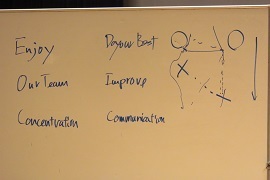 Enjoy Do your Best
Our Team Improve
Concentration Communication